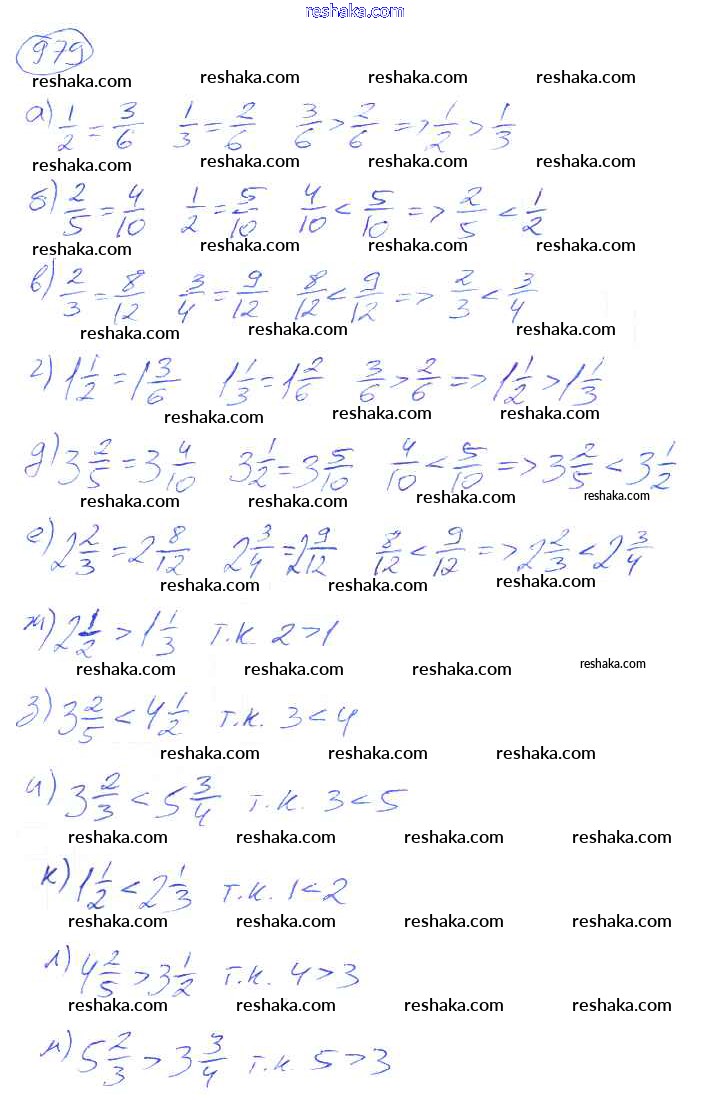 reshaka.com
979
reshaka.com reshaka.com reshaka.com reshaka.com
а) 1/2 = 3/6 1/3 = 2/6 3/6 > 2/6 => 1/2 > 1/3
reshaka.com reshaka.com reshaka.com reshaka.com
б) 2/5 = 4/10 1/2 = 5/10 4/10 < 5/10 => 2/5 < 1/2
reshaka.com reshaka.com reshaka.com reshaka.com
в) 2/3 = 8/12 3/4 = 9/12 8/12 < 9/12 => 2/3 < 3/4
reshaka.com reshaka.com reshaka.com
г) 1 1/2 = 1 3/6 1 1/3 = 1 2/6 3/6 > 2/6 => 1 1/2 > 1 1/3
reshaka.com reshaka.com reshaka.com
д) 3 2/5 = 3 4/10 3 1/2 = 3 5/10 4/10 < 5/10 => 3 2/5 < 3 1/2
reshaka.com reshaka.com reshaka.com reshaka.com
е) 2 2/3 = 2 8/12 2 3/4 = 2 9/12 8/12 < 9/12 => 2 2/3 < 2 3/4
reshaka.com reshaka.com reshaka.com
ж) 2 1/2 > 1 1/3 т.к 2 > 1
reshaka.com reshaka.com reshaka.com reshaka.com
з) 3 2/5 < 4 1/2 т.к. 3 < 4
reshaka.com reshaka.com reshaka.com
и) 3 2/3 < 5 3/4 т.к. 3 < 5
reshaka.com reshaka.com reshaka.com reshaka.com
к) 1 1/2 < 2 1/3 т.к. 1 < 2
reshaka.com reshaka.com reshaka.com reshaka.com
л) 4 2/5 > 3 1/2 т.к. 4 > 3
reshaka.com reshaka.com reshaka.com reshaka.com
м) 5 2/3 > 3 3/4 т.к 5 > 3